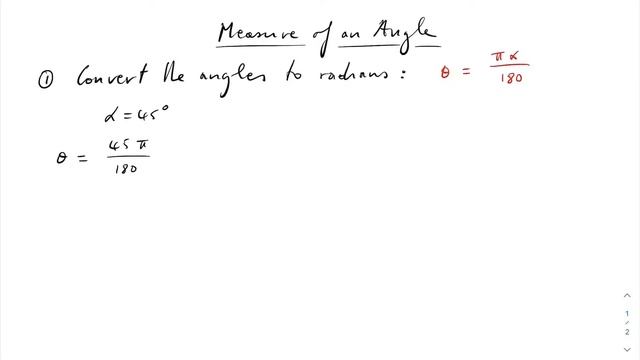 Measure of an Angle
① Convert the angles to radians: θ = πα/180
α = 45°
θ = 45π/180
1
/
2